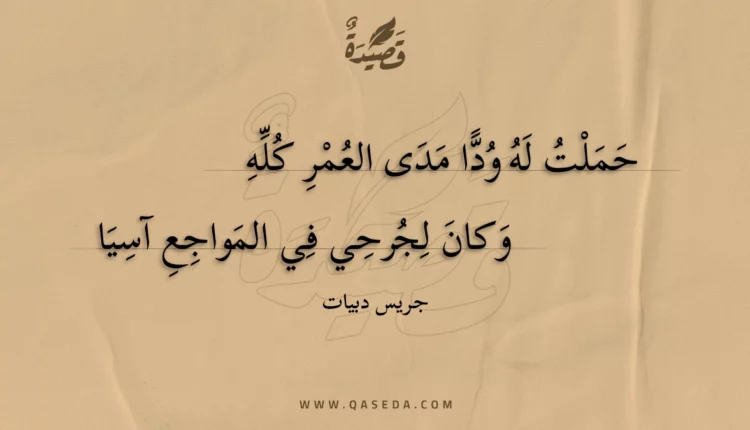 قَصِيدَةٌ
حَمَلْتُ لَهُ وُدًّا مَدَى العُمْرِ كُلِّهِ
وَكانَ لِجُرحِي فِي المَواجِعِ آسِيَا
جريس دبيات
WWW.QASEDA.COM